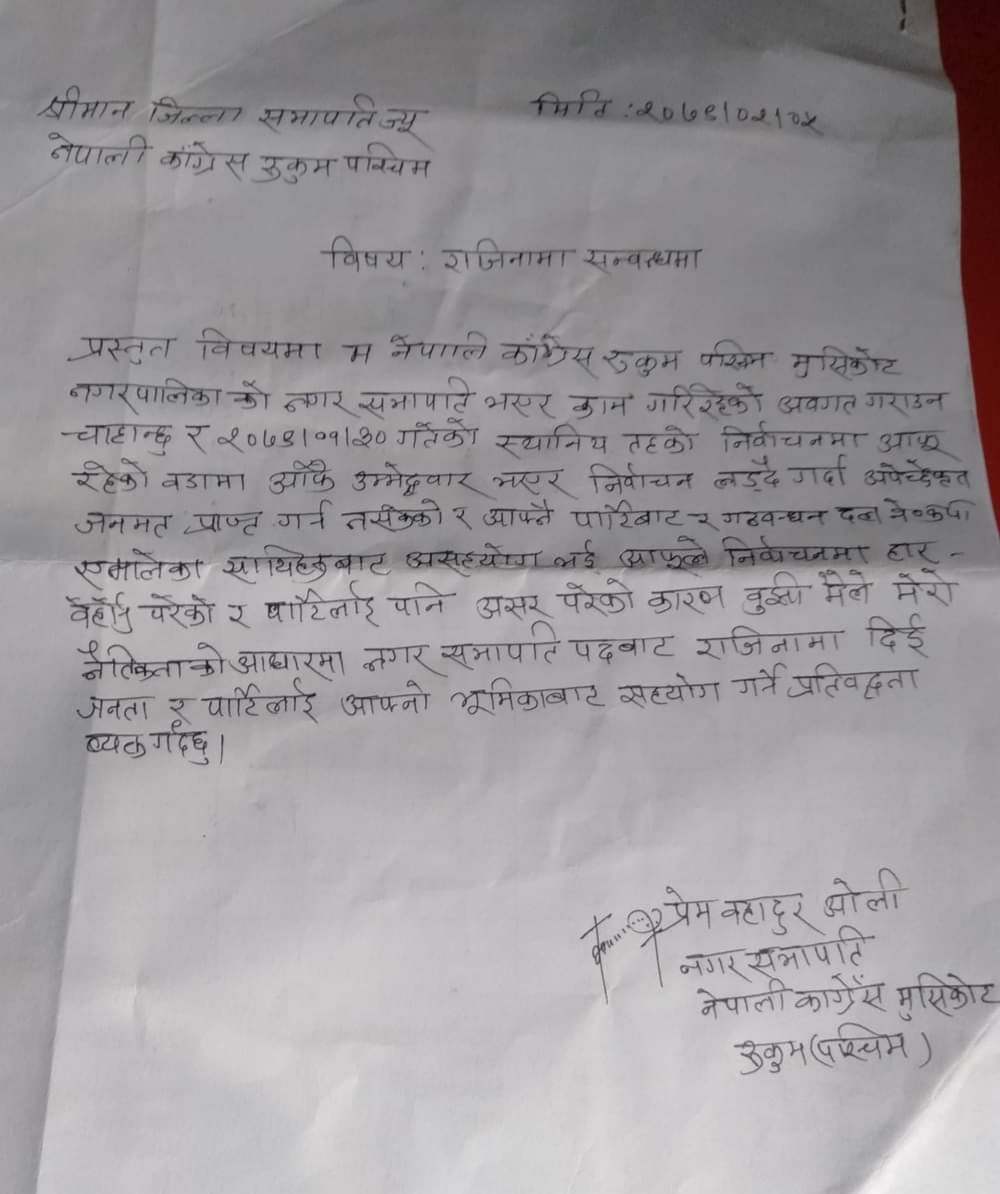 श्रीमान जिल्ला सभापतिज्यू
मिति : २०७९।०२।०५
नेपाली काँग्रेस रुकुम पश्चिम
विषय : राजिनामा सन्वन्धमा
प्रस्तुत विषयमा म नेपालि काँग्रेस रुकुम पश्चिम मुसिकोट
नगरपालिका को नगर सभापति भएर काम गरिरहेको अवगत गराउन
चाहान्छु र २०७९।०१।३० गतेको स्थानिय तहको निर्वाचनमा आफू
रहेको वडामा आँफै उम्मेद्वार भएर निर्वाचन लड्दै गर्दा अपेच्छेकृत
जनमत प्राप्त गर्न नसकेको र आफ्नै पार्टिबाट र गठवन्धन दल
एमालेका साथिहरुबाट असहयोग भई आफूले निर्वाचनमा हार -
वेहोर्नु परेको र पार्टिलाई पनि असर परेको कारण वुझी मैले मेरो
नैतिकता को आधारमा नगर सभापति पदबाट राजिनामा दिई
जनता र पार्टिलाई आफ्नो भूमिकाबाट सहयोग गर्ने प्रतिवद्धता
व्यक्त गर्दछु।
प्रेम वहादुर ओली
नगर सभापति
नेपाली काग्रेँस मुसिकोट
रुकुम (पश्चिम )